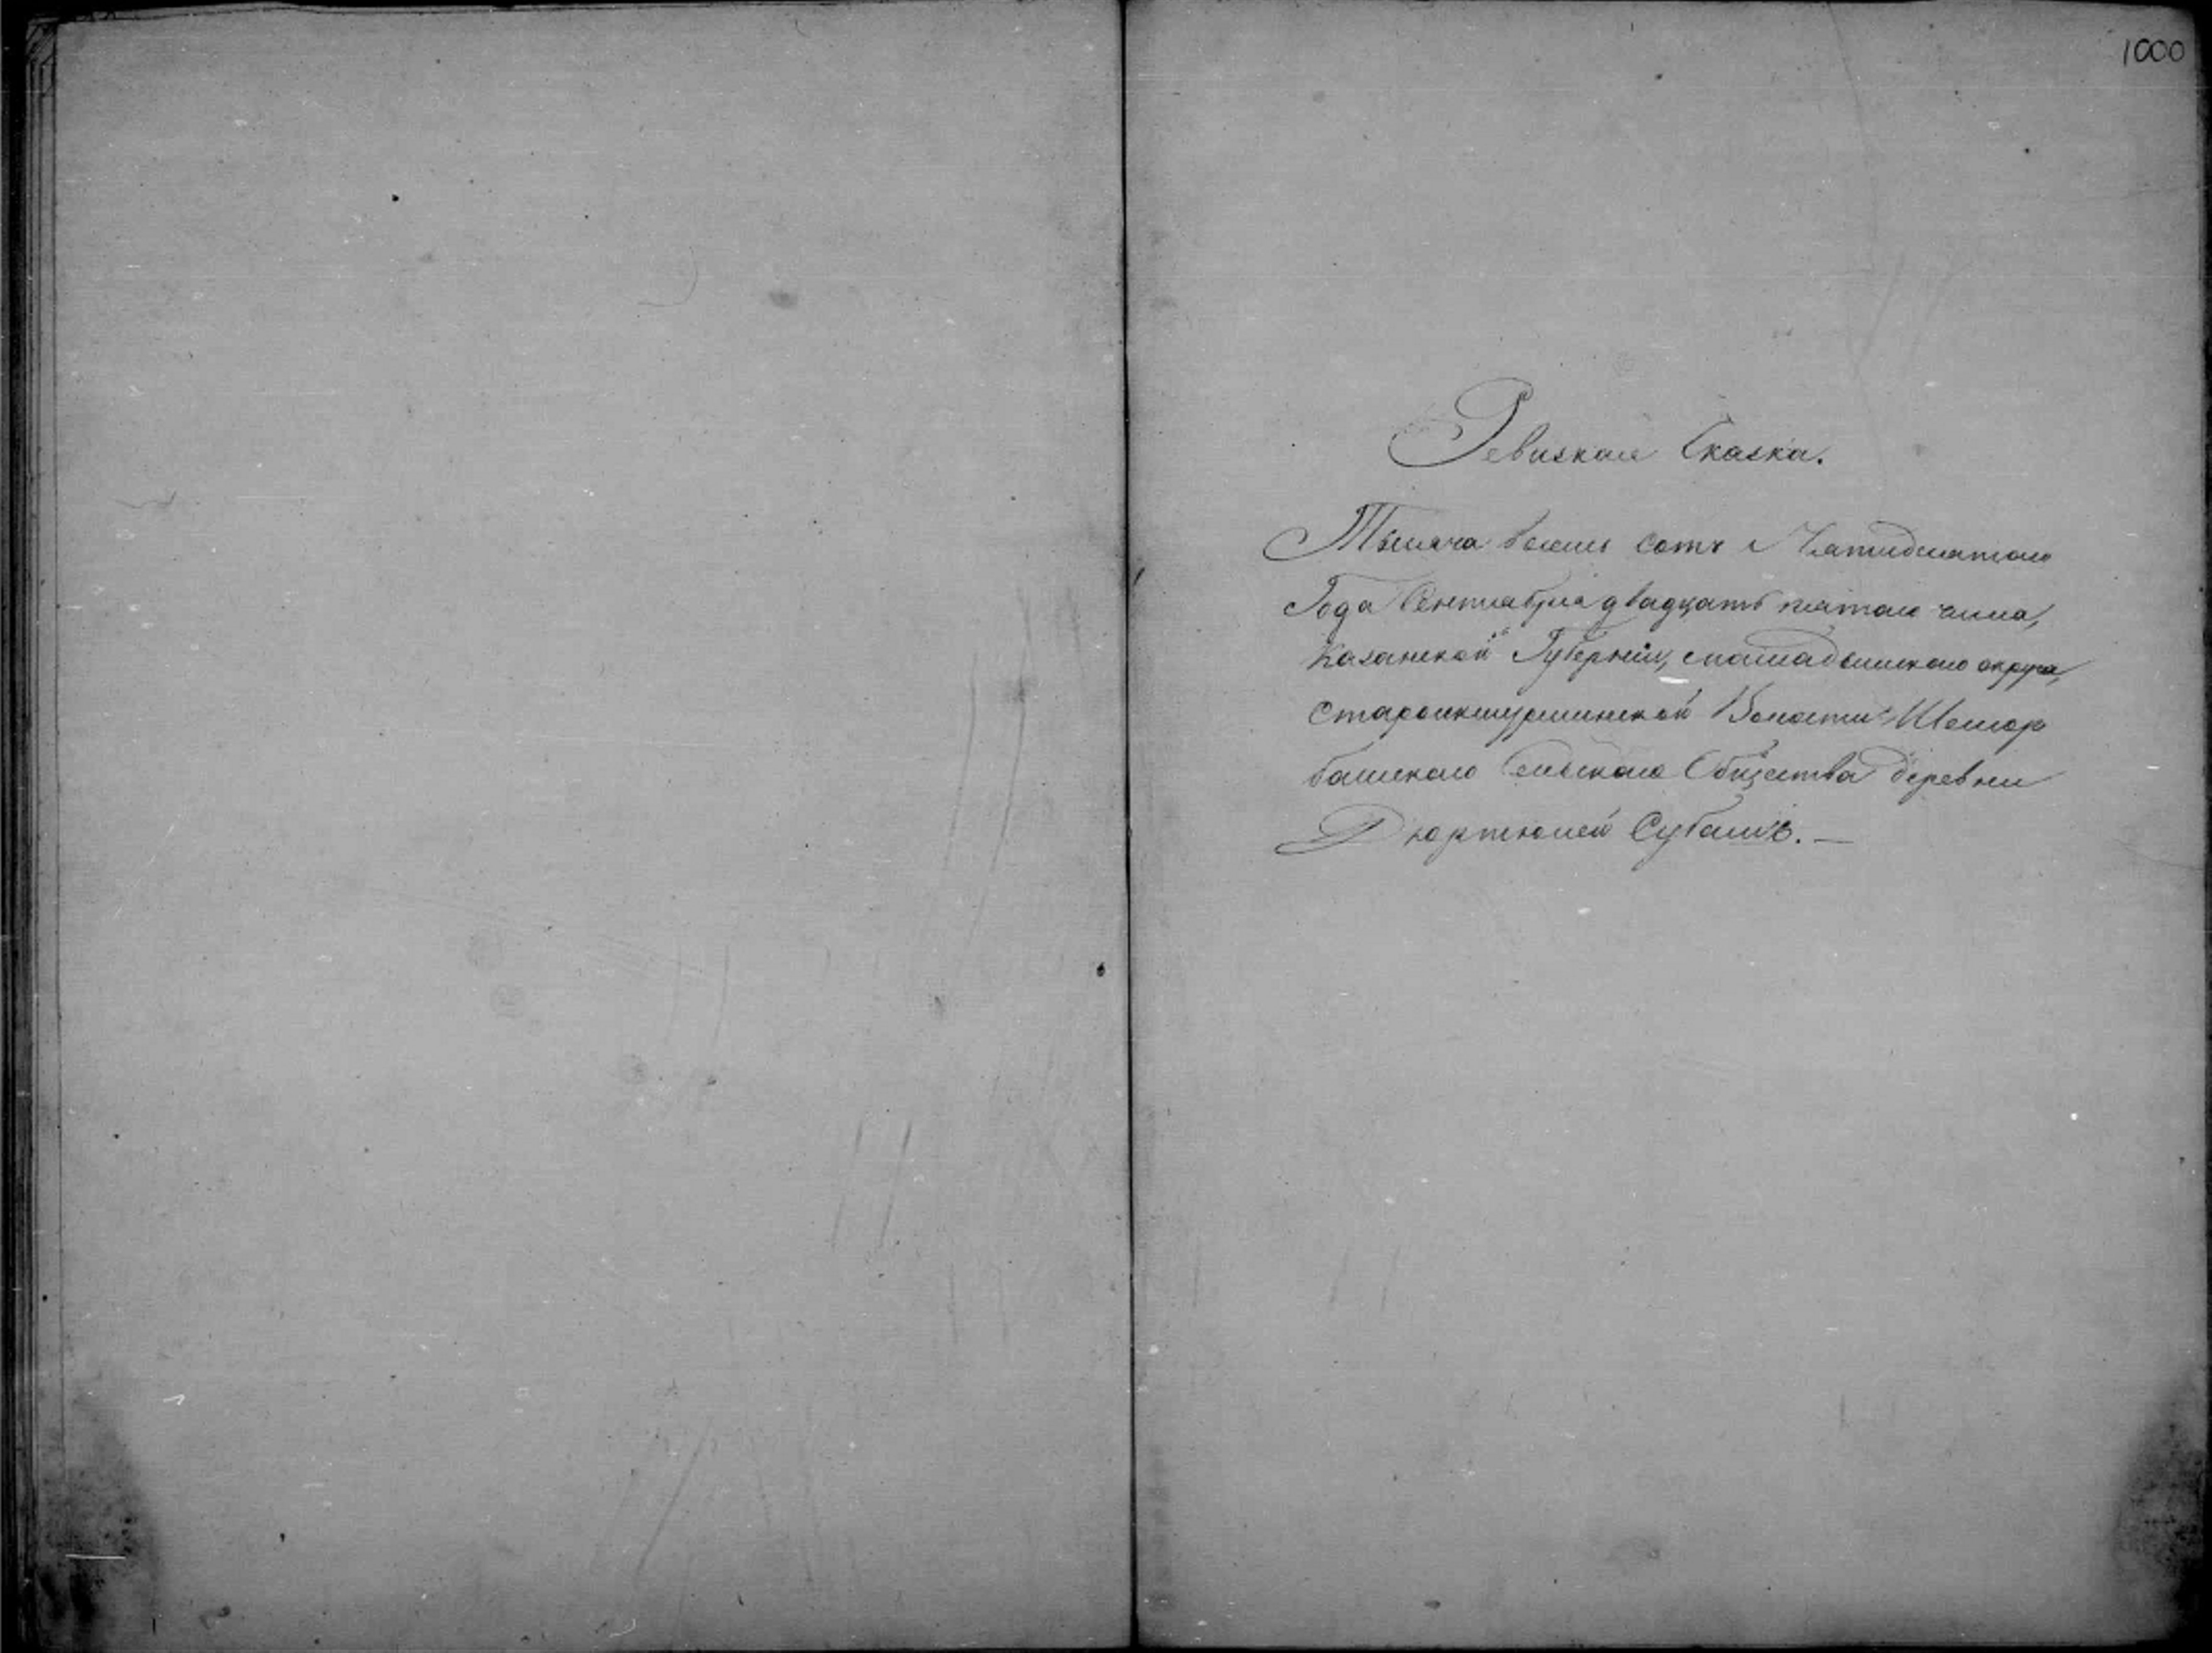 1000
Ревиская Сказка.
Тысяча восемь сотъ Пятидесятого
Года Сентября двадцать пятого числа,
Казанской Губерніи, округа,
Староикшурминской Волости Шемор
башского Сельского Общества деревни
Дюртюлей Субашъ. —